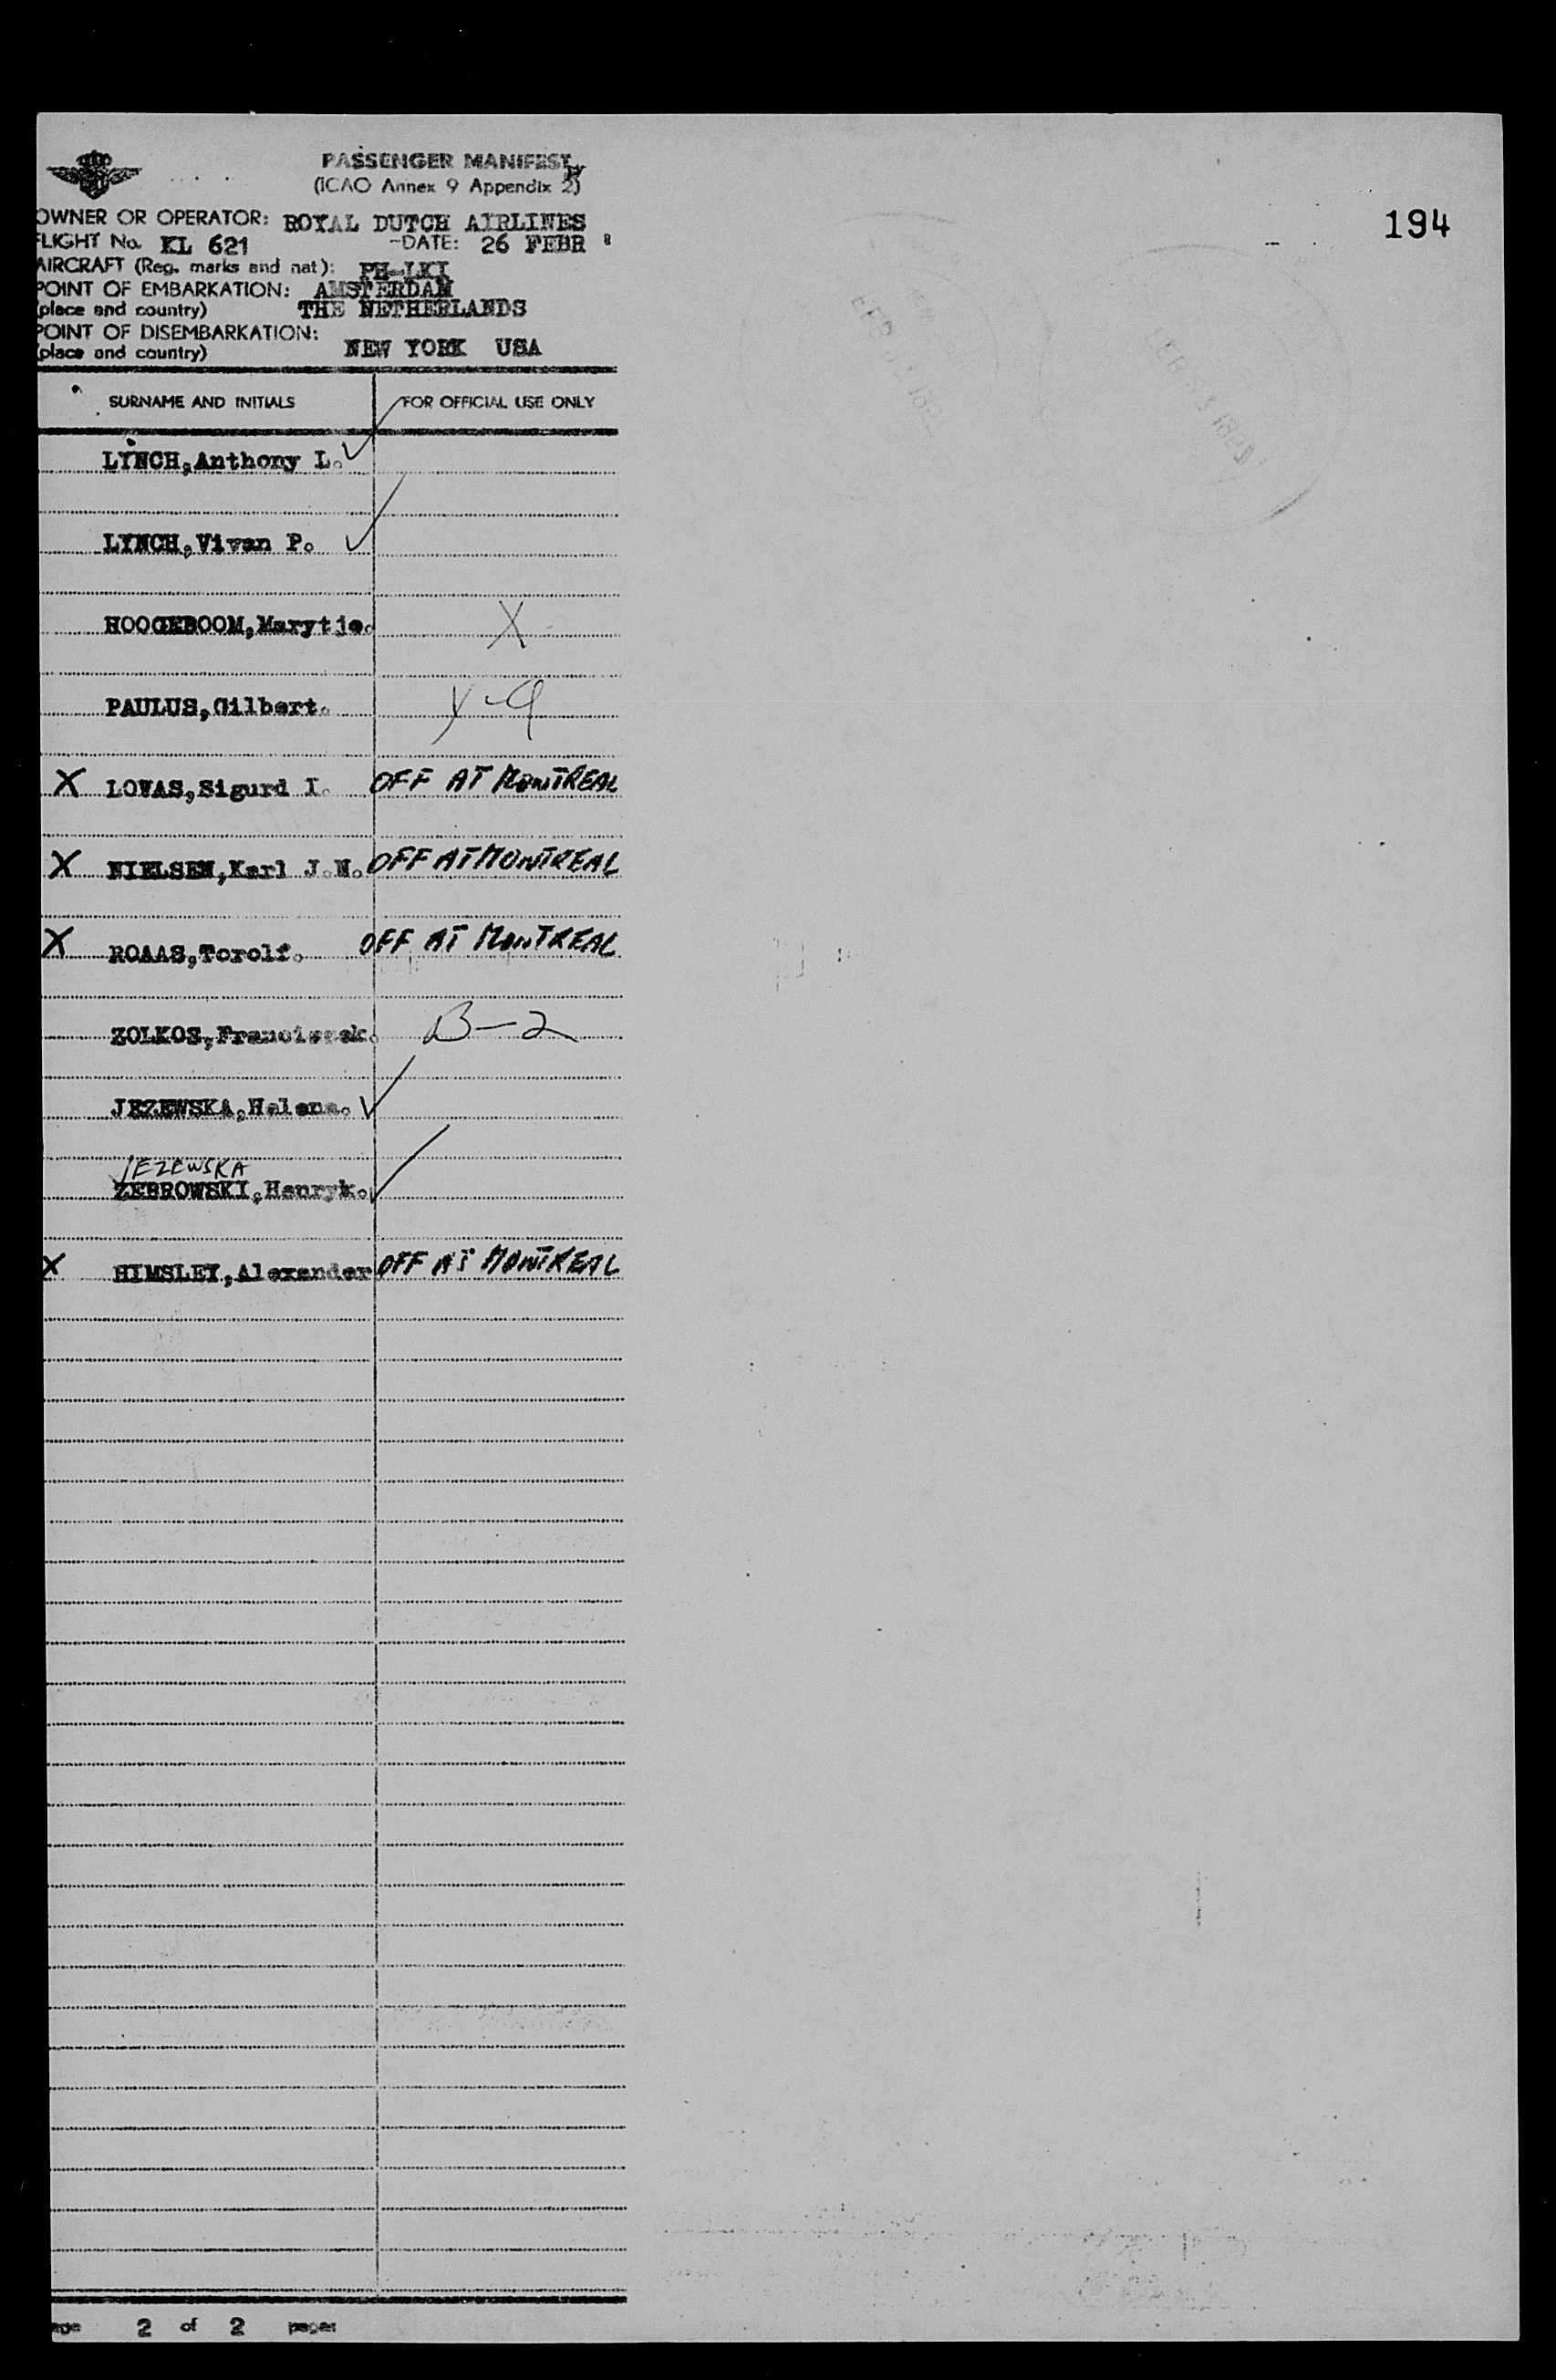 PASSENGER MANIFEST
(ICAO Annex 9 Appendix 2)
194
OWNER OR OPERATOR: ROYAL DUTCH AIRLINES
FLIGHT No. KL 621 DATE: 26 FEBR
AIRCRAFT (Reg. marks and nat): PH-LKI
POINT OF EMBARKATION: AMSTERDAM
(place and country) THE NETHERLANDS
POINT OF DISEMBARKATION:
(place and country) NEW YORK USA
SURNAME AND INITIALS FOR OFFICIAL USE ONLY
LYNCH, Anthony L. ✓
LYNCH, Vivan P. ✓
HOOGEBOOM, Marytje. X
PAULUS, Gilbert.
X LOVAS, Sigurd I. OFF AT MONTREAL
X NIELSEN, Karl J.N. OFF AT MONTREAL
X ROAAS, Torolf. OFF AT MONTREAL
ZOLKOS, Franciszek. B-2
JEZEWSKA, Helena. ✓
JEZEWSKA
ZEBROWSKI, Henryk. ✓
X HIMSLEY, Alexander OFF AT MONTREAL
age 2 of 2 pages